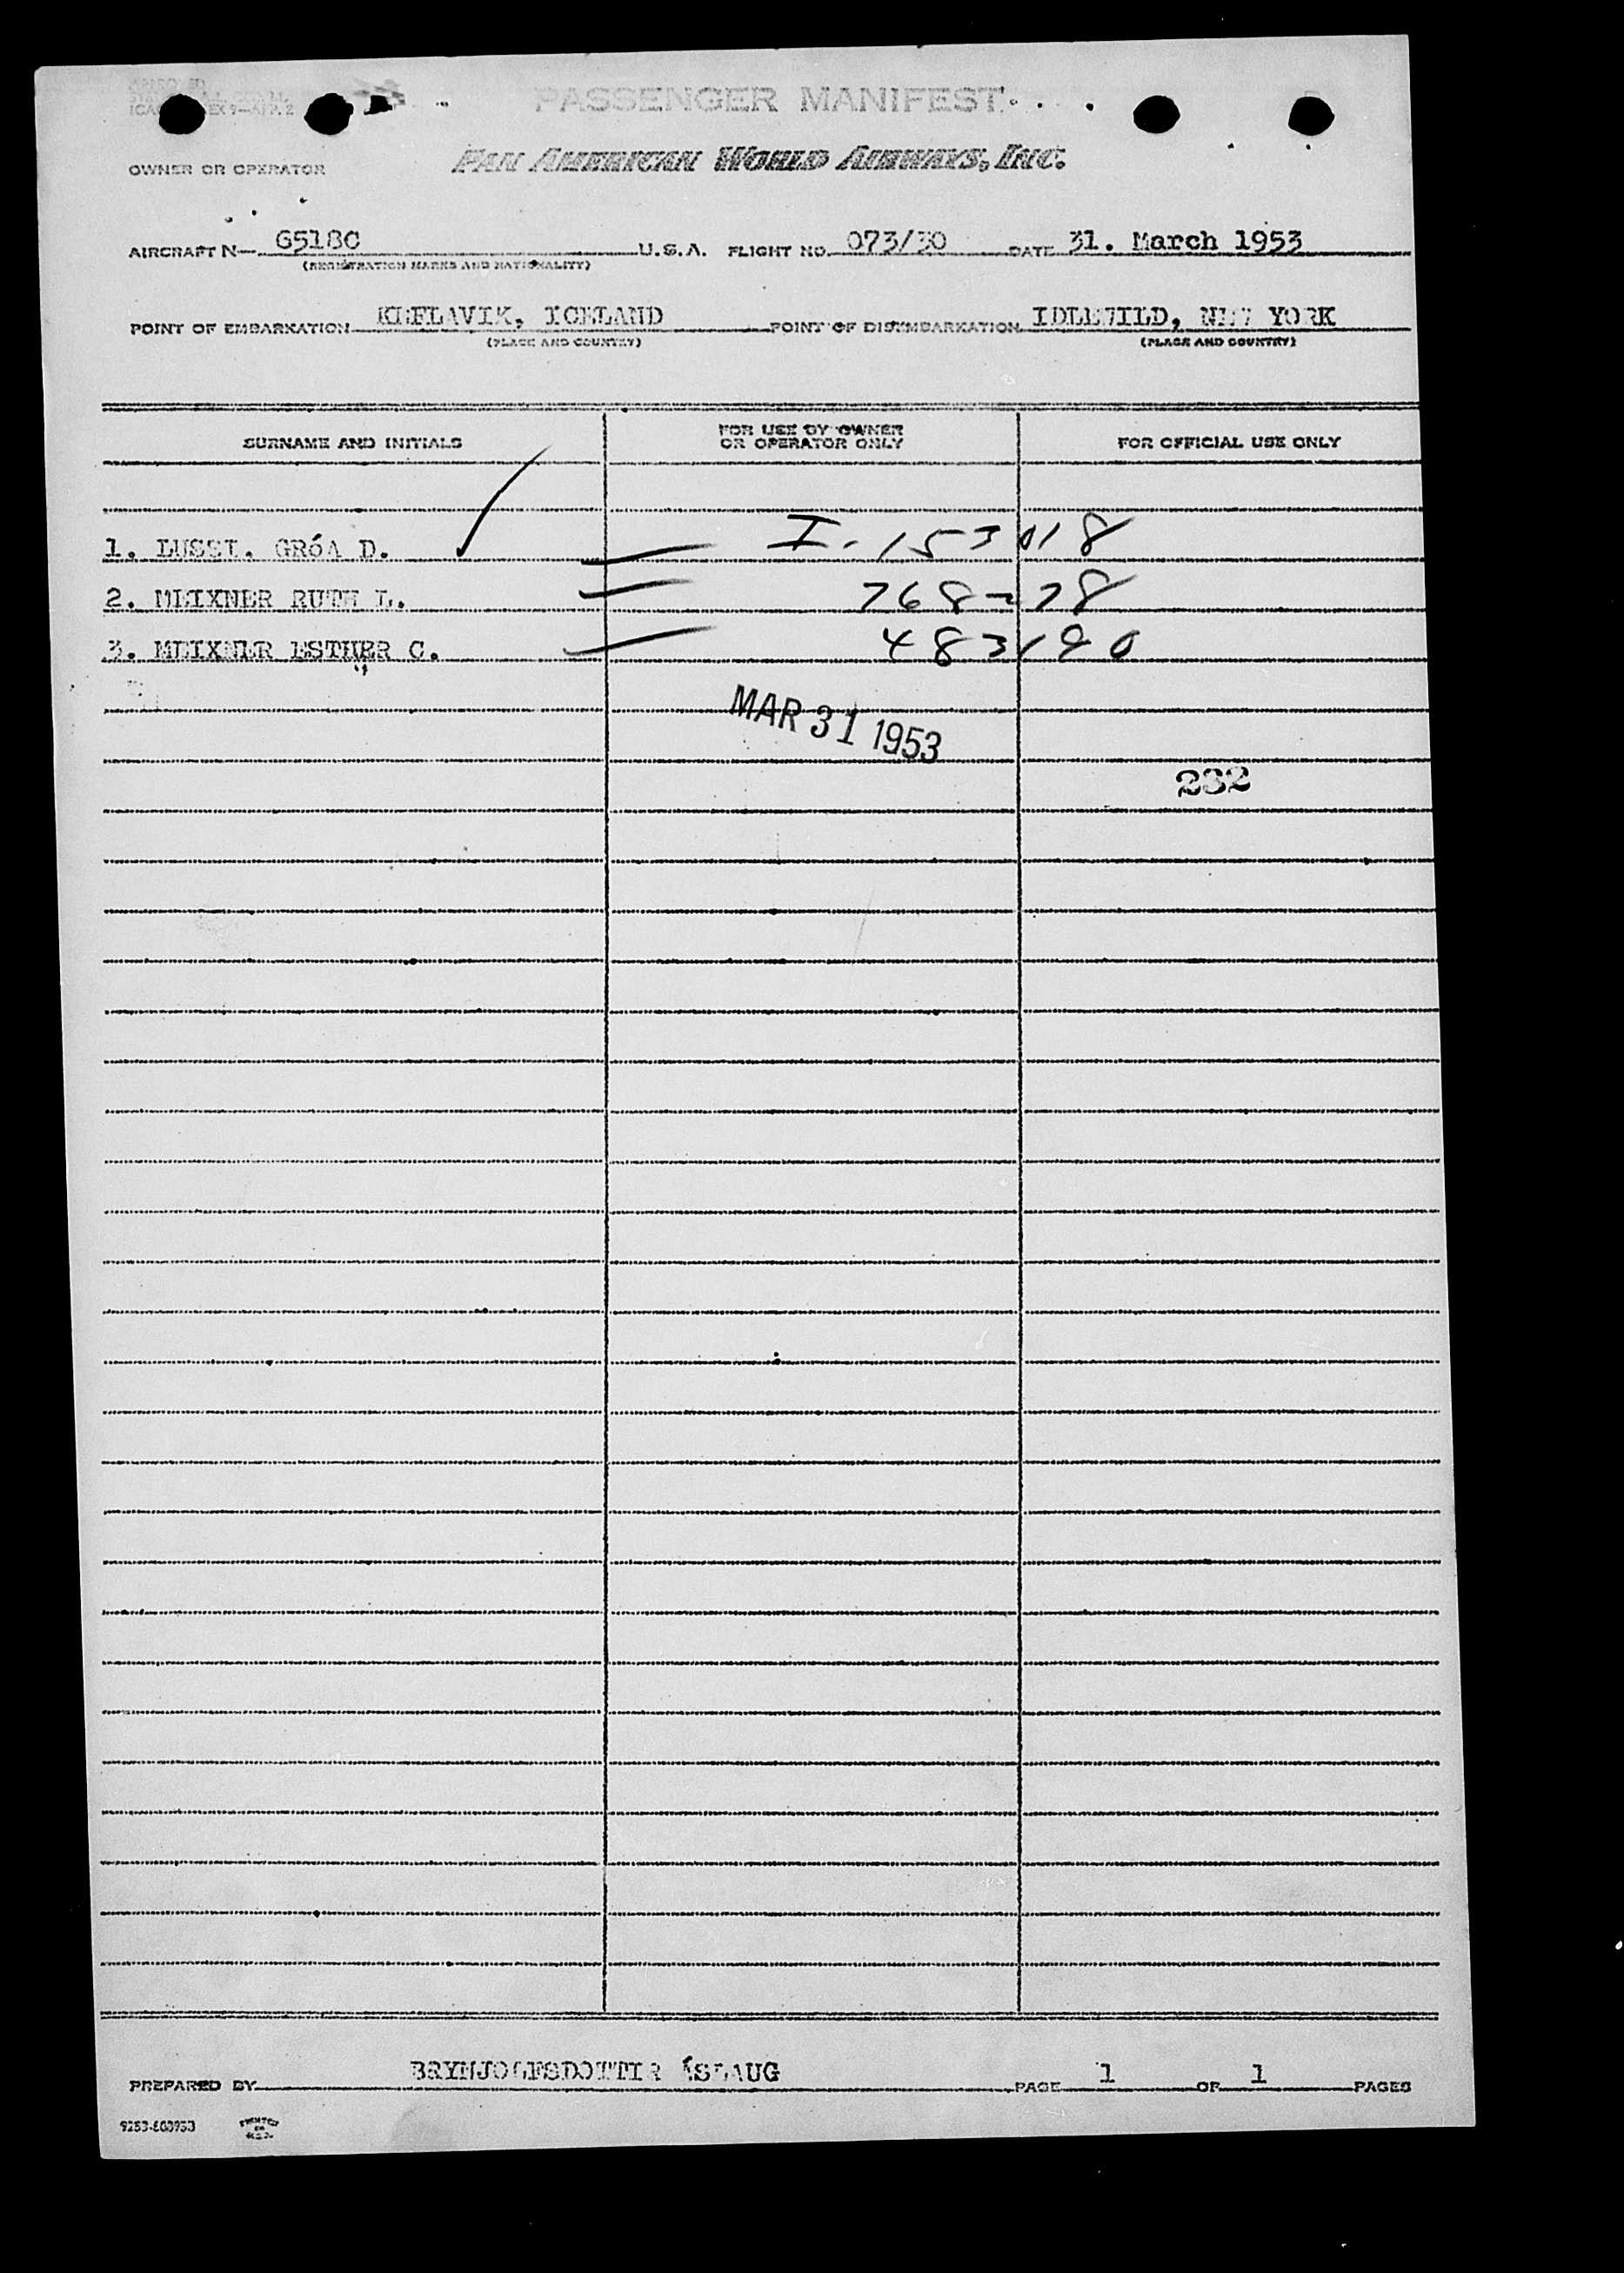 PASSENGER MANIFEST
OWNER OR OPERATOR PAN AMERICAN WORLD AIRWAYS, INC.
AIRCRAFT N— 6518C U.S.A. FLIGHT NO. 073/30 DATE 31. March 1953
(REGISTRATION MARKS AND NATIONALITY)
POINT OF EMBARKATION KEFLAVIK, ICELAND POINT OF DISEMBARKATION IDLEWILD, NEW YORK
(PLACE AND COUNTRY) (PLACE AND COUNTRY)
SURNAME AND INITIALS FOR USE BY OWNER OR OPERATOR ONLY FOR OFFICIAL USE ONLY
1. LUSSI. GRóA D. I-153018
2. MEIXNER RUTH L.
3. MEIXNER ESTHER C. 483190
MAR 31 1953
232
PREPARED BY BRYNJOLFSDOTTIR ÁSLAUG PAGE 1 OF 1 PAGES
PRINTED IN U.S.A.